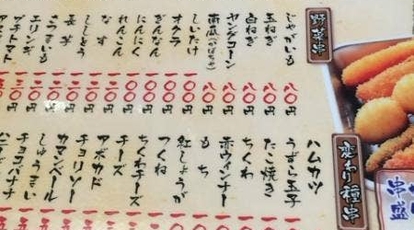 野菜串
じゃがいも 八〇円
玉ねぎ 八〇円
白ねぎ 八〇円
ヤングコーン 八〇円
南瓜(かぼちゃ) 八〇円
しいたけ 一〇〇円
オクラ 一〇〇円
ぎんなん 一〇〇円
にんにく 一〇〇円
れんこん 一〇〇円
なす 一〇〇円
ししとう 一〇〇円
長芋 一〇〇円
さつまいも
エリンギ
プチトマト
変わり種串
ハムカツ
うずら玉子
たこ焼き
ちくわ
赤ウィンナー
もち
紅しょうが
つくね
ちくわチーズ
チーズ
アボカド
チョリソー
カマンベール
しゅうまい
チョコバナナ
串盛